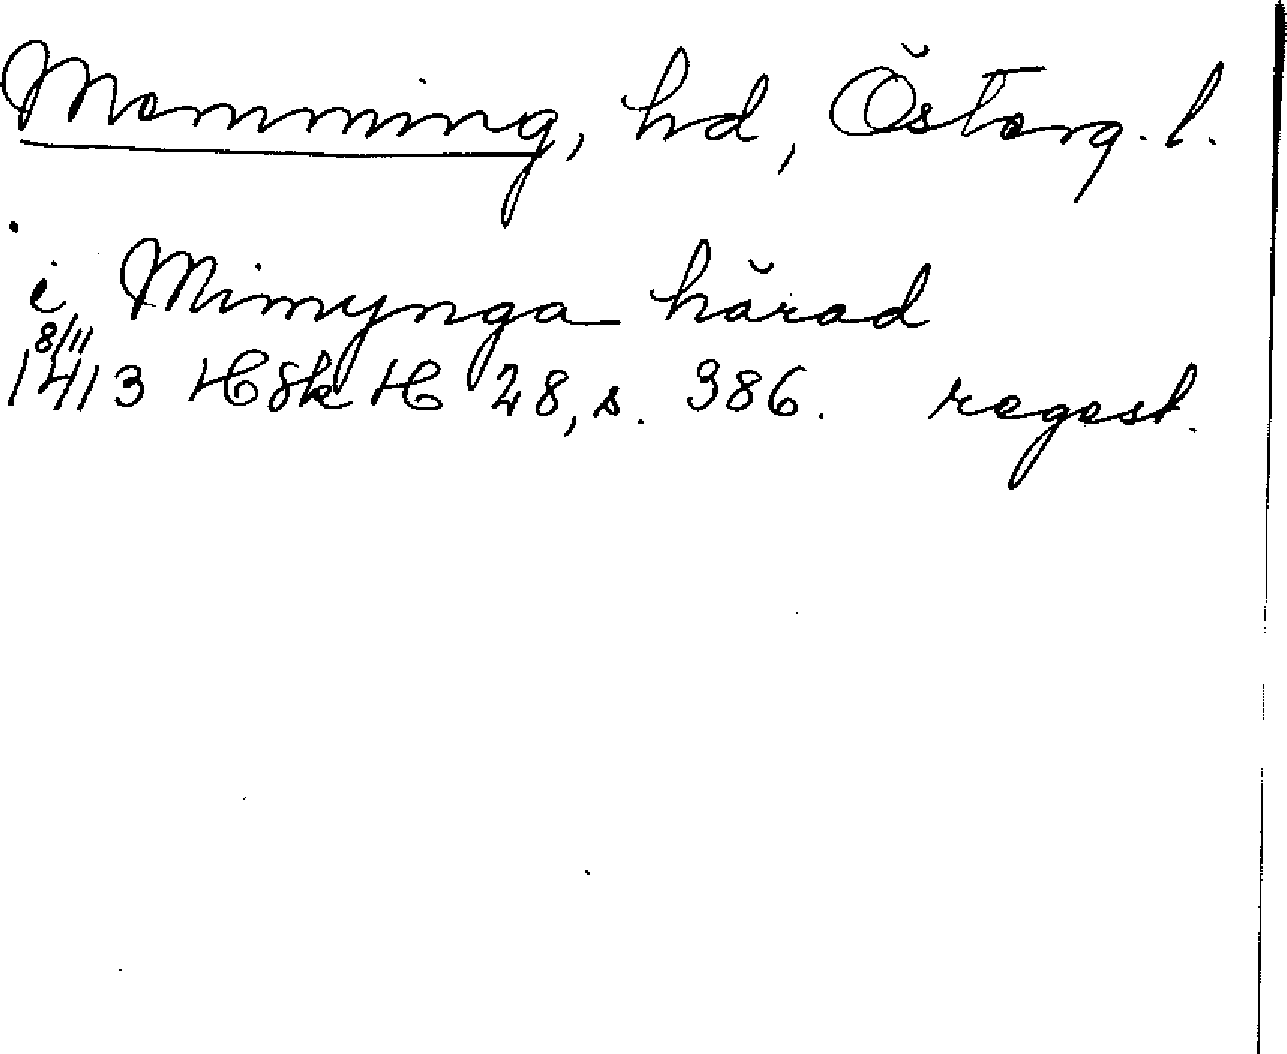 Memming, hd, Österg. l.
i Mimynga härad
8/11
1413 HSkH 28, s. 386. regest.